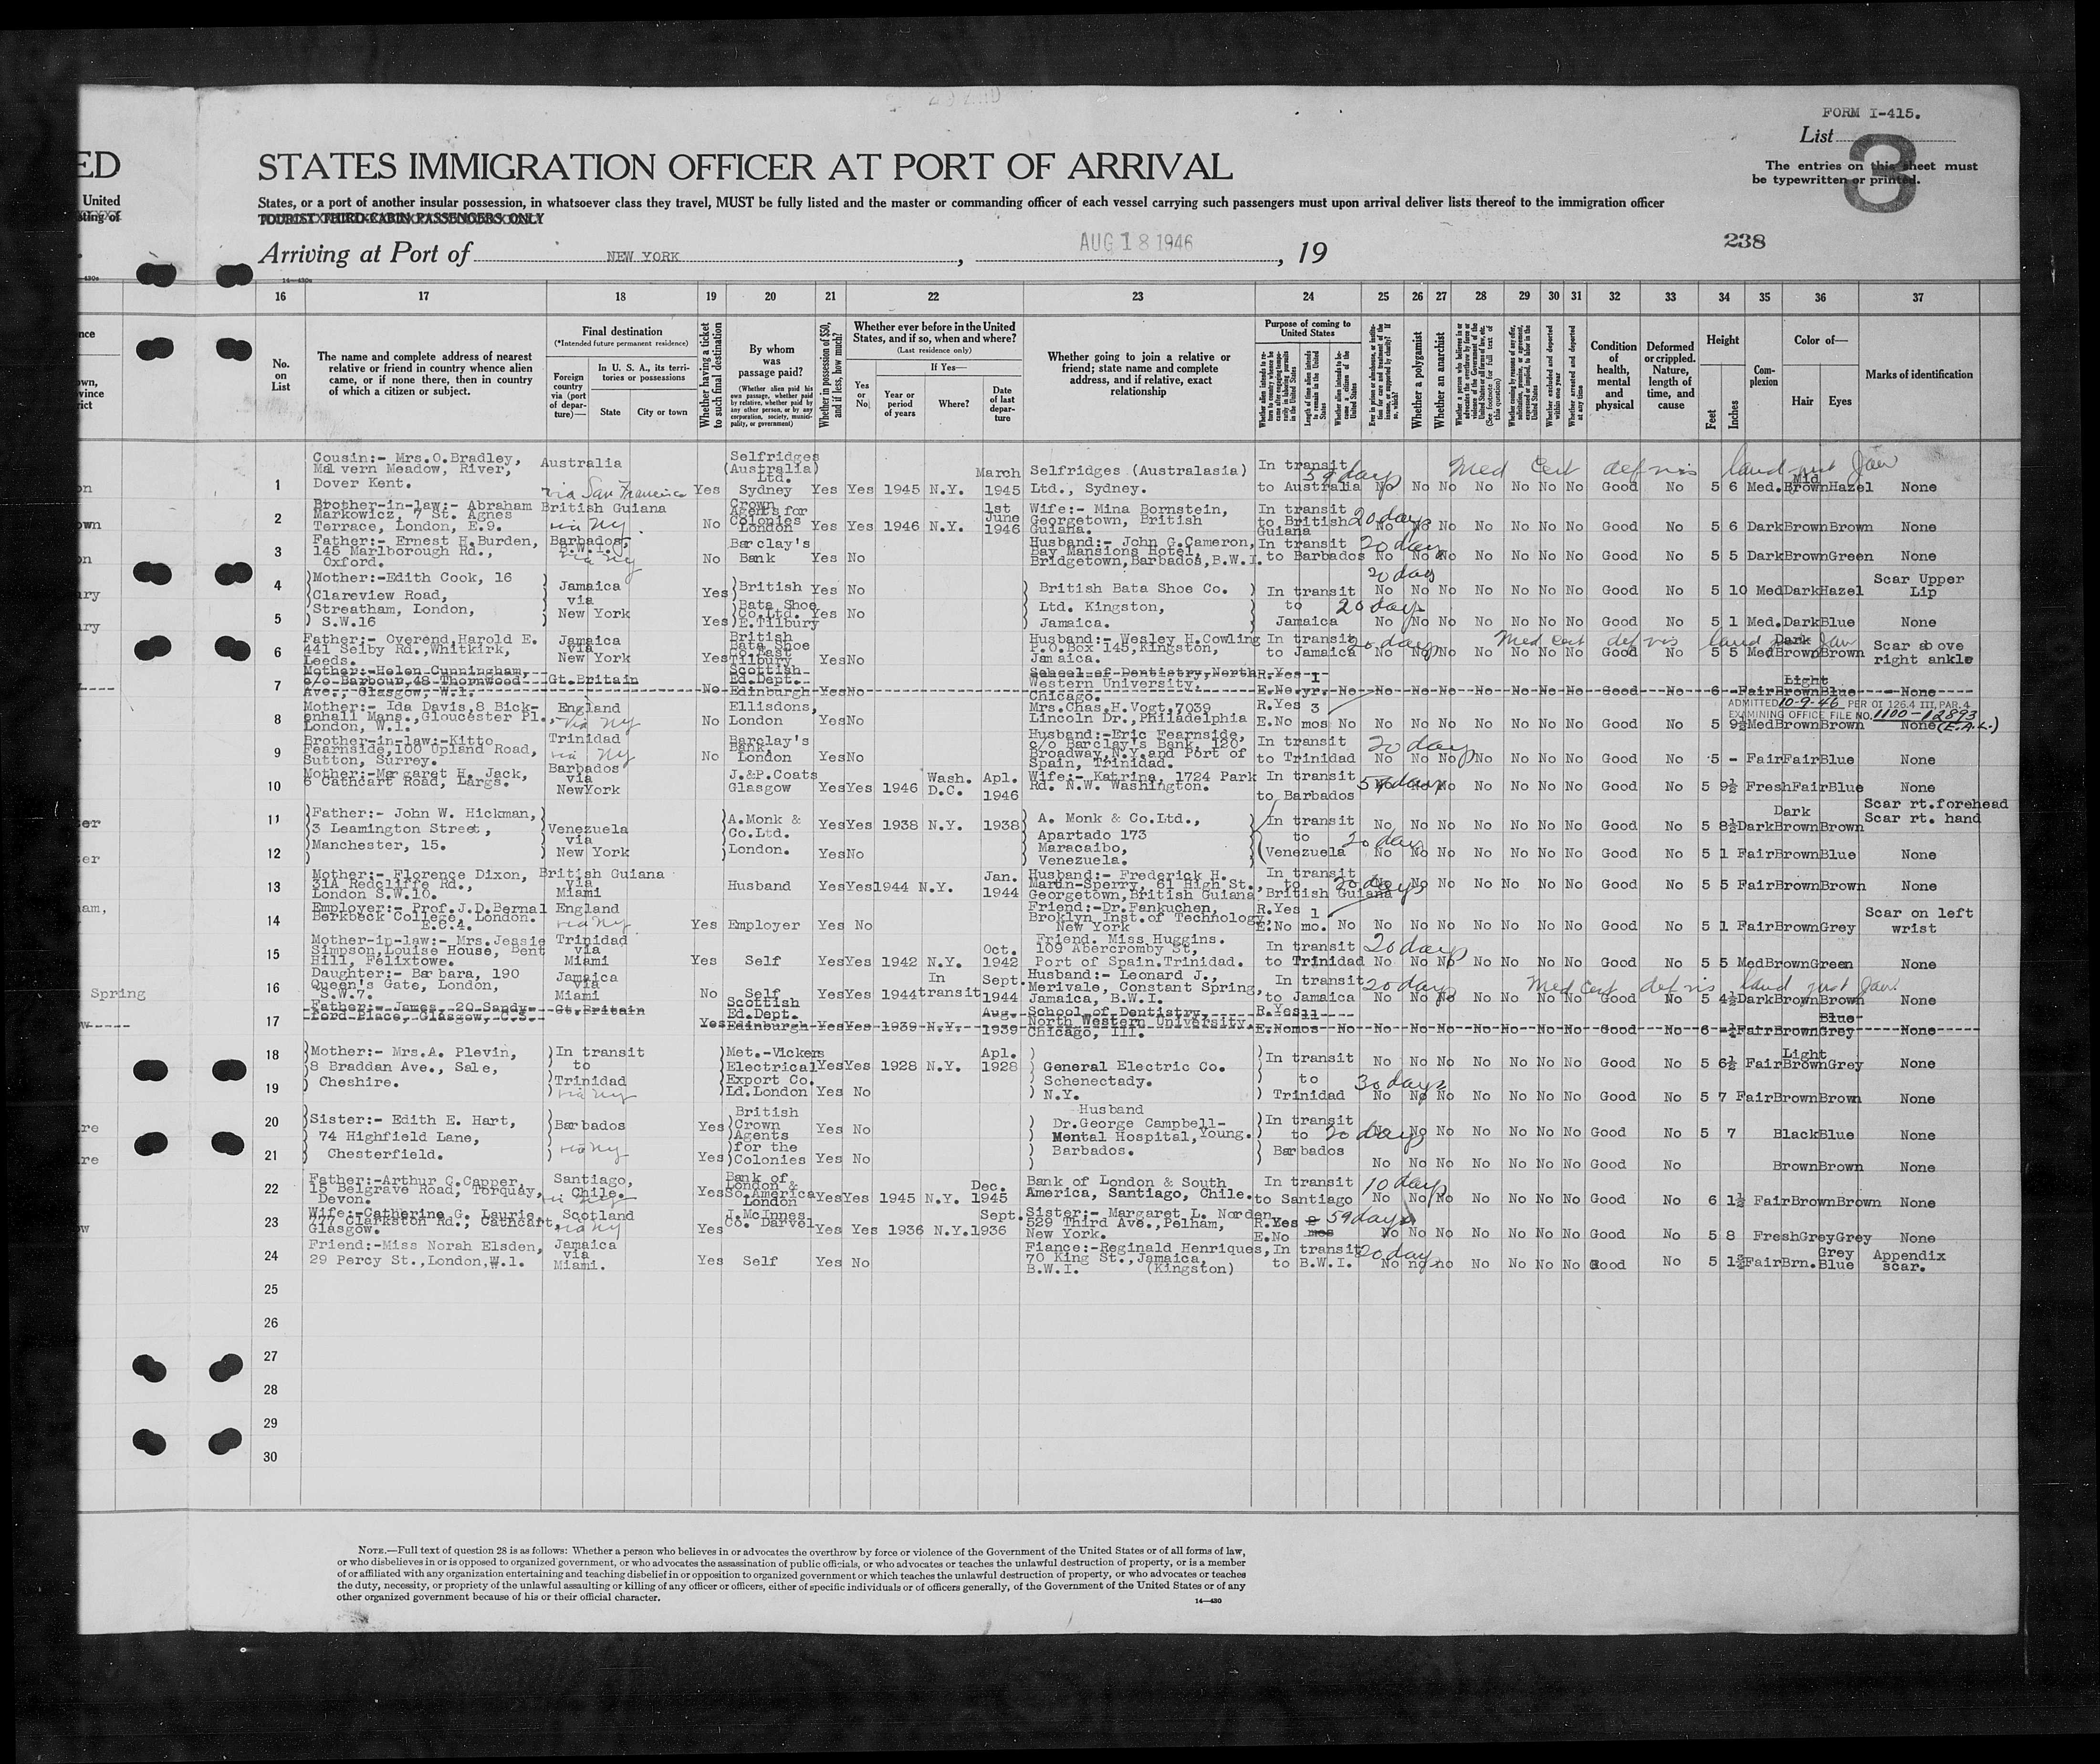 FORM I-415.
List
3
The entries on this sheet must
be typewritten or printed.
ED
STATES IMMIGRATION OFFICER AT PORT OF ARRIVAL
United
States, or a port of another insular possession, in whatsoever class they travel, MUST be fully listed and the master or commanding officer of each vessel carrying such passengers must upon arrival deliver lists thereof to the immigration officer
TOURIST THIRD-CABIN PASSENGERS ONLY
Arriving at Port of NEW YORK, AUG 18 1946, 19
238
16 17 18 19 20 21 22 23 24 25 26 27 28 29 30 31 32 33 34 35 36 37
No. on List
The name and complete address of nearest relative or friend in country whence alien came, or if none there, then in country of which a citizen or subject.
Final destination
(*Intended future permanent residence)
Foreign country via (port of departure)—
In U. S. A., its territories or possessions
State
City or town
Whether having a ticket to such final destination
By whom was passage paid?
(Whether alien paid his own passage, whether paid by relative, whether paid by any other person, or by any corporation, society, municipality, or government)
Whether in possession of $50, and if less, how much?
Whether ever before in the United States, and if so, when and where?
(Last residence only)
Yes or No
If Yes—
Year or period of years
Where?
Date of last departure
Whether going to join a relative or friend; state name and complete address, and if relative, exact relationship
Purpose of coming to United States
Length of time alien intends to remain in the United States
Whether a polygamist
Whether an anarchist
Whether excluded and deported within one year
Whether arrested and deported at any time
Condition of health, mental and physical
Deformed or crippled. Nature, length of time, and cause
Height
Feet
Inches
Complexion
Color of—
Hair
Eyes
Marks of identification
1 Cousin:- Mrs.O.Bradley, Malvern Meadow, River, Dover Kent. Australia via San Francisco Yes Selfridges (Australia) Ltd. Sydney Yes Yes 1945 N.Y. March 1945 Selfridges (Australasia) Ltd., Sydney. In transit to Australia 59 days No No No No No No No Good No 5 6 Med. Mid Brown Hazel None
Med Cert def vis land just Jaw
2 Brother-in-law:- Abraham Markowicz, 7 St. Agnes Terrace, London, E.9. British Guiana via NY No Crown Agents for Colonies London Yes Yes 1946 N.Y. 1st June 1946 Wife:- Mina Bornstein, Georgetown, British Guiana. In transit to British Guiana 20 days No No No No No No No Good No 5 6 Dark Brown Brown None
3 Father:- Ernest H.Burden, 145 Marlborough Rd., Oxford. Barbados, B.W.I. via NY No Barclay's Bank Yes No Husband:- John G.Cameron, Bay Mansions Hotel, Bridgetown, Barbados, B.W.I. In transit to Barbados 20 days No No No No No No No Good No 5 5 Dark Brown Green None
4 Mother:-Edith Cook, 16 Clareview Road, Streatham, London, S.W.16 Jamaica via New York Yes British Bata Shoe Co.Ltd. E.Tilbury Yes No British Bata Shoe Co. Ltd. Kingston, Jamaica. In transit to Jamaica 20 days No No No No No No No Good No 5 10 Med Dark Hazel Scar Upper Lip
5 Yes Yes No 20 days No No No No No No No Good No 5 1 Med. Dark Blue None
6 Father:- Overend,Harold E. 441 Selby Rd.,Whitkirk, Leeds. Jamaica via New York Yes British Bata Shoe Co.East Tilbury Yes No Husband:- Wesley H.Cowling P.O.Box 145,Kingston, Jamaica. In transit to Jamaica 20 days No No No No No No No Good No 5 5 Med Dark Brown Brown Scar above right ankle
Med Cert def vis land just Jaw
7 Mother:-Helen Cunningham, c/o Barbour,48 Thornwood Ave., Glasgow, W.1. Gt.Britain No Scottish Ed.Dept. Edinburgh Yes No School of Dentistry,North Western University, Chicago. R.Yes 1 E.No yr. No No No No No No No No Good No 6 - Fair Light Brown Blue None
8 Mother:- Ida Davis,8 Bickenhall Mans.,Gloucester Pl., London, W.1. England via NY No Ellisdons, London Yes No Mrs.Chas.H.Vogt,7039 Lincoln Dr.,Philadelphia R.Yes 3 E.No mos No No No No No No No No Good No 5 9½ Med Brown Brown None
ADMITTED 10-9-46 PER OI 126.4 III, PAR. 4
EXAMINING OFFICE FILE NO. 1100-12893 (E.A.L.)
9 Brother-in-law:-Kitto Fearnside,100 Upland Road, Sutton, Surrey. Trinidad via NY No Barclay's Bank. London Yes No Husband:-Eric Fearnside, c/o Barclay's Bank, 120 Broadway,N.Y.and Port of Spain, Trinidad. In transit to Trinidad 20 days No No No No No No No Good No 5 - Fair Fair Blue None
10 Mother:-Margaret H. Jack, 6 Cathcart Road, Largs. Barbados via NewYork J.&P.Coats Glasgow Yes Yes 1946 Wash. D.C. Apl. 1946 Wife:- Katrina, 1724 Park Rd. N.W. Washington. In transit to Barbados days No No No No No No Good No 5 9½ Fresh Fair Blue None
11 Father:- John W. Hickman, 3 Leamington Street, Manchester, 15. Venezuela via New York A.Monk & Co.Ltd. London. Yes Yes 1938 N.Y. 1938 A. Monk & Co.Ltd., Apartado 173 Maracaibo, Venezuela. In transit to Venezuela No No No No No No No Good No 5 8½ Dark Dark Brown Brown Scar rt.forehead Scar rt. hand
12 Yes No 20 days No No No No No No No Good No 5 1 Fair Brown Blue None
13 Mother:- Florence Dixon, 31A Redcliffe Rd., London S.W.10. British Guiana via Miami Husband Yes Yes 1944 N.Y. Jan. 1944 Husband:- Frederick H. Martin-Sperry, 61 High St., Georgetown,British Guiana In transit to British Guiana 20 days No No No No No No Good No 5 5 Fair Brown Brown None
14 Employer:- Prof.J.D.Bernal Berkbeck College, London. E.C.4. England via NY Yes Employer Yes No Friend:-Dr.Fankuchen, Broklyn Inst.of Technology, New York R.Yes 1 E.No mo. No No No No No No No No Good No 5 1 Fair Brown Grey Scar on left wrist
15 Mother-in-law:- Mrs.Jessie Simpson,Louise House, Bent Hill, Felixtowe. Trinidad via Miami Yes Self Yes Yes 1942 N.Y. Oct. 1942 Friend. Miss Huggins. 109 Abercromby St, Port of Spain.Trinidad. In transit to Trinidad 20 days No No No No No No No Good No 5 5 Med Brown Green None
16 Daughter:- Barbara, 190 Queen's Gate, London, S.W.7. Jamaica via Miami No Self Yes Yes 1944 In transit Sept. 1944 Husband:- Leonard J., Merivale, Constant Spring, Jamaica, B.W.I. In transit to Jamaica 20 days No No No No No No No Good No 5 4½ Dark Brown Brown None
Med Cert def vis land just Jaw
17 Father:- James, 20 Sandyford Place, Glasgow, C.3. Gt.Britain Yes Scottish Ed.Dept. Edinburgh Yes Yes 1939 N.Y. Aug. 1939 School of Dentistry, North Western University, Chicago, Ill. R.Yes 11 E.No mos No No No No No No No No Good No 6 -½ Fair Brown Blue Grey None
18 Mother:- Mrs.A. Plevin, 8 Braddan Ave., Sale, Cheshire. In transit to Trinidad via NY Met.-Vickers Electrical Export Co. Ld.London Yes Yes 1928 N.Y. Apl. 1928 General Electric Co. Schenectady. N.Y. In transit to Trinidad No No No No No No No Good No 5 6½ Fair Light Brown Grey None
19 Yes No 30 days No No No No No No No Good No 5 7 Fair Brown Brown None
20 Sister:- Edith E. Hart, 74 Highfield Lane, Chesterfield. Barbados via NY Yes British Crown Agents for the Colonies Yes No Husband Dr.George Campbell-Young. Mental Hospital, Barbados. In transit to Barbados 20 days No No No No No No No Good No 5 7 Black Blue None
21 Yes Yes No No No No No No No No Good No Brown Brown None
22 Father:-Arthur C.Capper, 15 Belgrave Road, Torquay, Devon. Santiago, Chile. via NY Yes Bank of London & So.America London Yes Yes 1945 N.Y. Dec. 1945 Bank of London & South America, Santiago, Chile. In transit to Santiago 10 days No No No No No No No Good No 6 1½ Fair Brown Brown None
23 Wife:-Catherine G. Laurie, 777 Clarkston Rd., Cathcart, Glasgow. Scotland via NY Yes J.McInnes Co. Darvel Yes Yes 1936 N.Y. Sept. 1936 Sister:- Margaret L. Norden 529 Third Ave.,Pelham, New York. R.Yes 2 E.No mos 59 days No No No No No No No Good No 5 8 Fresh Grey Grey None
24 Friend:-Miss Norah Elsden, 29 Percy St.,London,W.1. Jamaica via Miami. Yes Self Yes No Fiance:-Reginald Henriques, 70 King St.,Jamaica, B.W.I. (Kingston) In transit to B.W.I. 20 days No no no No No No No Good No 5 Fair Brn. Grey Blue Appendix scar.
25
26
27
28
29
30
Spring
NOTE.—Full text of question 28 is as follows: Whether a person who believes in or advocates the overthrow by force or violence of the Government of the United States or of all forms of law,
or who disbelieves in or is opposed to organized government, or who advocates the assassination of public officials, or who advocates or teaches the unlawful destruction of property, or is a member
of or affiliated with any organization entertaining and teaching disbelief in or opposition to organized government or which teaches the unlawful destruction of property, or who advocates or teaches
the duty, necessity, or propriety of the unlawful assaulting or killing of any officer or officers, either of specific individuals or of officers generally, of the Government of the United States or of any
other organized government because of his or their official character.
14—430